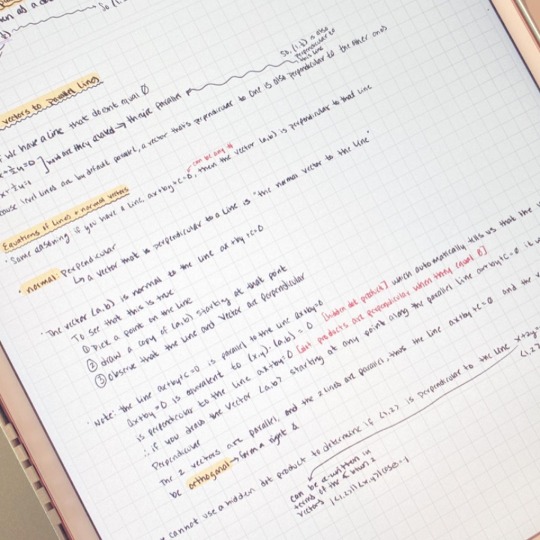 So, (a,b) is also
perpendicular to
this line
vectors to parallel lines
we have a line that doesn't equal 0
how are they related → they are parallel
level lines are by default parallel, a vector that's perpendicular to one is also perpendicular to the other ones
can be any #
Equations of lines & normal vectors
· Same reasoning: if you have a line, ax+by+c=0, then the vector (a,b) is perpendicular to that line
· normal: perpendicular
↳ a vector that is perpendicular to a line is "the normal vector to the line"
· The vector (a,b) is normal to the line ax+by+c=0
To see that this is true
① pick a point on the line
② draw a copy of (a,b) starting at that point
③ observe that the line and vector are perpendicular
· Note: the line ax+by+c=0 is parallel to the line ax+by=0
ax+by=0 is equivalent to (x,y)·(a,b) = 0 [hidden dot product] which automatically tells us that the
is perpendicular to the line ax+by=0 [dot products are perpendicular when they equal 0]
∴ if you draw the vector (a,b) starting at any point along the parallel line ax+by+c=0 it
perpendicular
The 2 vectors are parallel, and the 2 lines are parallel, thus the line ax+by+c=0 and the
be orthogonal → form a right ∡
cannot use a hidden dot product to determine if (1,2) is perpendicular to the line x+2y=
can be re-written in
terms of the
vectors